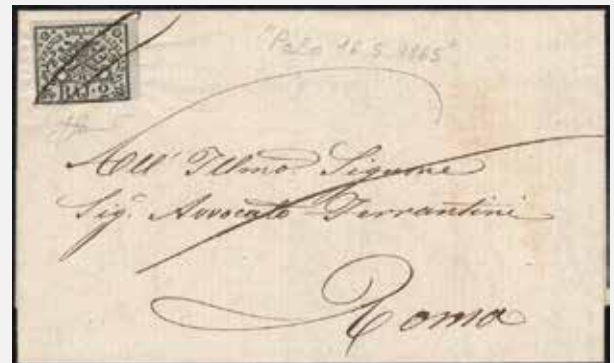 "Palo 16 5 1865"
BAJ 2
All' Illmo Signore
Sig. Avvocato Ferrantini
Roma